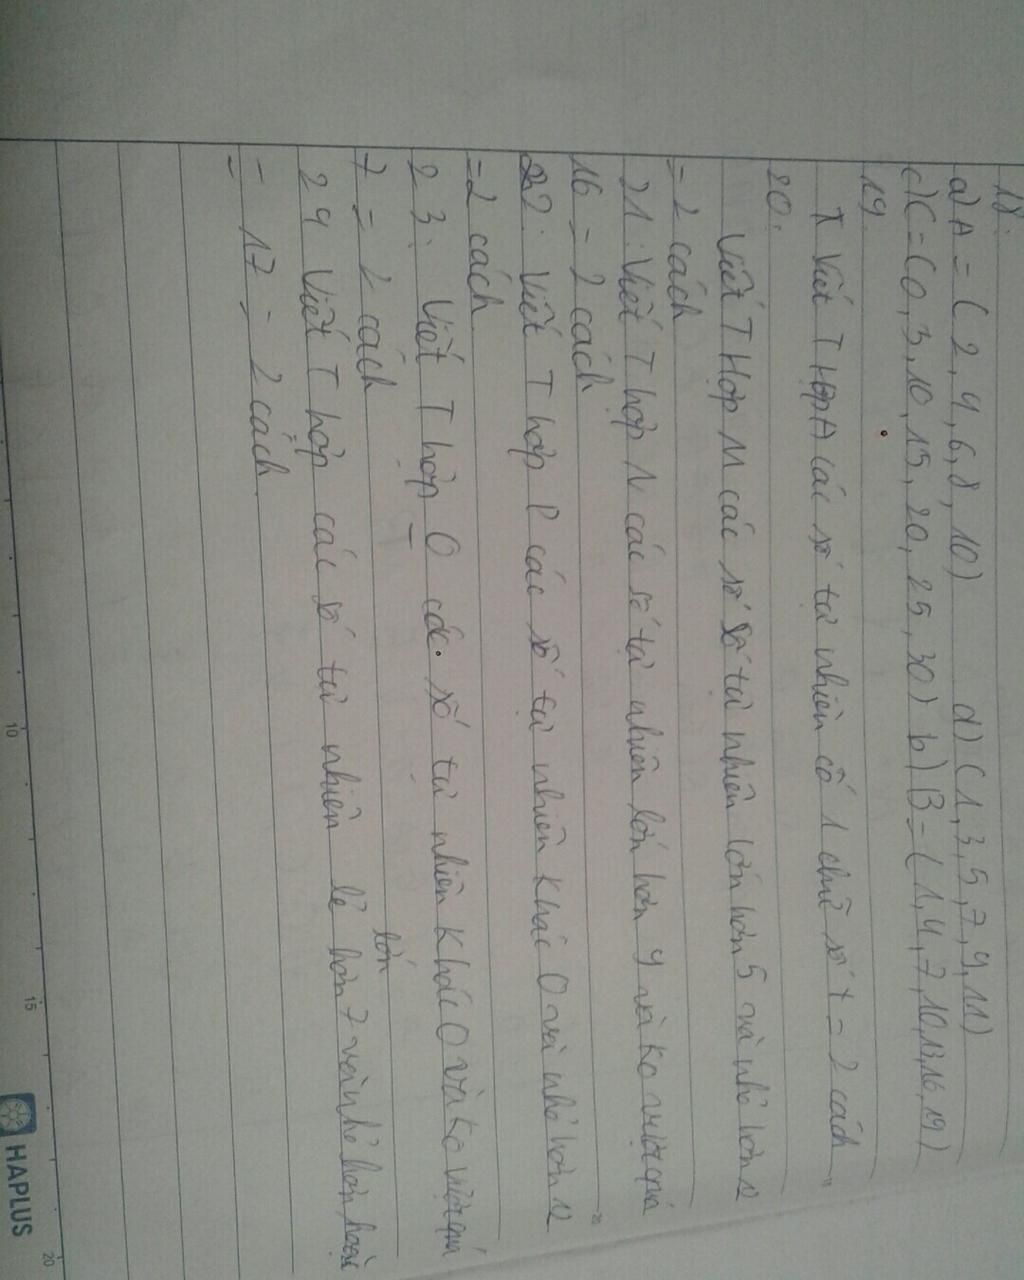 18.
a) A = ( 2, 4, 6, 8, 10) d) ( 1, 3, 5, 7, 9, 11)
c) C = ( 0, 3, 10, 15, 20, 25, 30) b) B = ( 1, 4, 7, 10, 13, 16, 19)
19.
Viết T Hợp A các số tự nhiên có 1 chữ số = 2 cách
20.
Viết T Hợp M các số số tự nhiên lớn hơn 5 và nhỏ hơn 12
= 2 cách
21: Viết T hợp N các số tự nhiên lớn hơn 9 và ko vượt quá
16 = 2 cách
22: Viết T hợp P các số tự nhiên khác 0 và nhỏ hơn 12
= 2 cách
23: Viết T hợp O các số tự nhiên khác 0 và ko vượt quá
7 = 2 cách
24 Viết T hợp các số tự nhiên lẻ lớn hơn 7 và nhỏ hơn hoặc
= 17 = 2 cách
10 15 20
HAPLUS